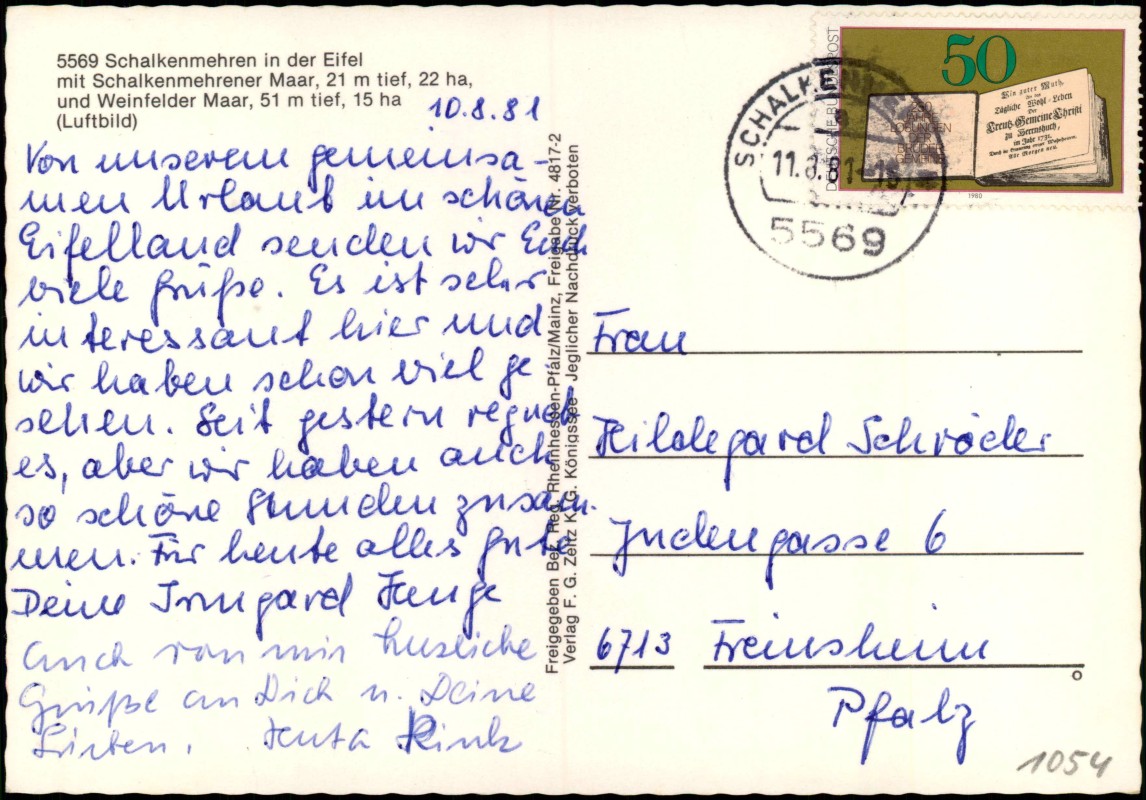 5569 Schalkenmehren in der Eifel
mit Schalkenmehrener Maar, 21 m tief, 22 ha,
und Weinfelder Maar, 51 m tief, 15 ha
(Luftbild)
10.8.81
Von unserem gemeinsa-
men Urlaub im schönen
Eifelland senden wir Euch
viele Grüße. Es ist sehr
interessant hier und
wir haben schon viel ge-
sehen. Seit gestern regnet
es, aber wir haben auch
so schöne Stunden zusam-
men. Für heute alles Gute
Deine Irmgard
Auch von mir herzliche
Grüße an Dich u. Deine
Lieben.
Freigegeben Bez. Reg. Rheinhessen-Pfalz/Mainz, Freigabe Nr. 4817-2
Verlag F. G. Zeitz K.G. Königssee Jeglicher Nachdruck verboten
DEUTSCHE BUNDESPOST
50
250
JAHRE
LOSUNGEN
DER
BRÜDER-
GEMEINE
Ein guter Muth,
Tägliche Wohl-Leben
Der
Creutz-Gemeine Christi
zu Herrnhuth,
im Jahr 1731.
Alle Morgen neu.
1980
SCHALKENM
11.8.81-15
5569
Frau
Hildegard Schröder
Judengasse 6
6713 Freinsheim
Pfalz
1054